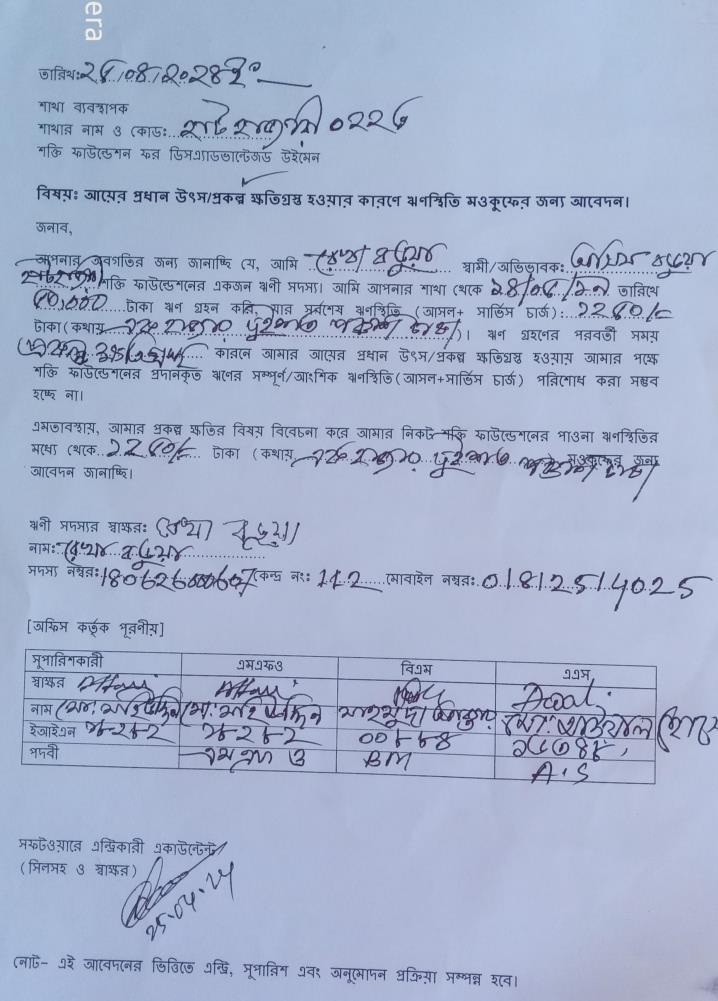 era
তারিখঃ
শাখা ব্যবস্থাপক
শাখার নাম ও কোডঃ হাটহাজারী
শক্তি ফাউন্ডেশন ফর ডিসএ্যাডভান্টেজড উইমেন
বিষয়ঃ আয়ের প্রধান উৎস/প্রকল্প ক্ষতিগ্রস্ত হওয়ার কারণে ঋণস্থিতি মওকুফের জন্য আবেদন।
জনাব,
আপনার অবগতির জন্য জানাচ্ছি যে, আমি রেখা বড়ুয়া স্বামী/অভিভাবক: বড়ুয়া
শক্তি ফাউন্ডেশনের একজন ঋণী সদস্য। আমি আপনার শাখা থেকে তারিখে
টাকা ঋণ গ্রহন করি, যার সর্বশেষ ঋণস্থিতি (আসল+ সার্ভিস চার্জ)
টাকা (কথায় এক হাজার দুইশত পঞ্চাশ টাকা)। ঋণ গ্রহণের পরবর্তী সময়
কারনে আমার আয়ের প্রধান উৎস/প্রকল্প ক্ষতিগ্রস্ত হওয়ায় আমার পক্ষে
শক্তি ফাউন্ডেশনের প্রদানকৃত ঋণের সম্পূর্ণ/আংশিক ঋণস্থিতি (আসল+সার্ভিস চার্জ) পরিশোধ করা সম্ভব
হচ্ছে না।
এমতাবস্থায়, আমার প্রকল্প ক্ষতির বিষয় বিবেচনা করে আমার নিকট শক্তি ফাউন্ডেশনের পাওনা ঋণস্থিতির
মধ্যে থেকে টাকা (কথায় এক হাজার দুইশত পঞ্চাশ টাকা মওকুফের জন্য
আবেদন জানাচ্ছি।
ঋণী সদস্যর স্বাক্ষর: রেখা বড়ুয়া
নাম: রেখা বড়ুয়া
সদস্য নম্বরঃ কেন্দ্র নং: 112 মোবাইল নম্বর: 01812514025
[অফিস কর্তৃক পূরণীয়]
সুপারিশকারী এমএফও বিএম এএস
স্বাক্ষর
নাম মো: মাইন উদ্দিন মো: মাইন উদ্দিন মাহমুদা আক্তার মো: আউয়াল হোসেন
ইআইএন
পদবী এম এফ ও BM A.S
সফটওয়ারে এন্ট্রিকারী একাউন্টেন্ট
(সিলসহ ও স্বাক্ষর)
25.04.24
নোট- এই আবেদনের ভিত্তিতে এন্ট্রি, সুপারিশ এবং অনুমোদন প্রক্রিয়া সম্পন্ন হবে।